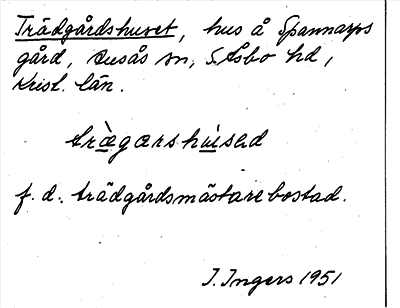 Trädgårdshuset, hus å Spannarps
gård, Ausås sn, S. Åsbo hd,
Krist. län.
træ̀gærshúsəd
f. d. trädgårdsmästarebostad.
I. Ingers 1951